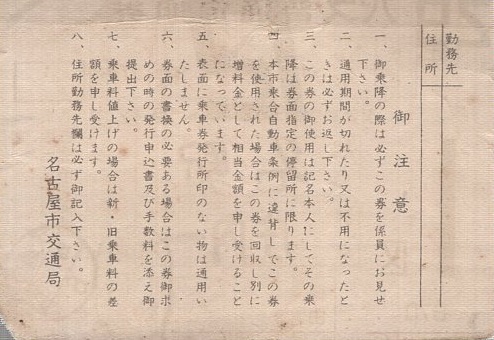 勤務先
住所
御注意
一、御乗降の際は必ずこの券を係員にお見せ
下さい。
二、通用期間が切れたり又は不用になったと
きは必ずお返し下さい。
三、この券の御使用は記名本人にしてその乗
降は券面指定の停留所に限ります。
四、本市乗合自動車条例に違背してこの券
を使用された場合はこの券を回収し別に
増料金として相当金額を申し受けること
になっています。
五、表面に乗車券発行所印のない物は通用い
たしません。
六、券面の書換の必要ある場合はこの券御求
めの時の発行申込書及び手数料を添え御
提出下さい。
七、乗車料値上げの場合は新・旧乗車料の差
額を申し受けます。
八、住所勤務先欄は必ず御記入下さい。
名古屋市交通局